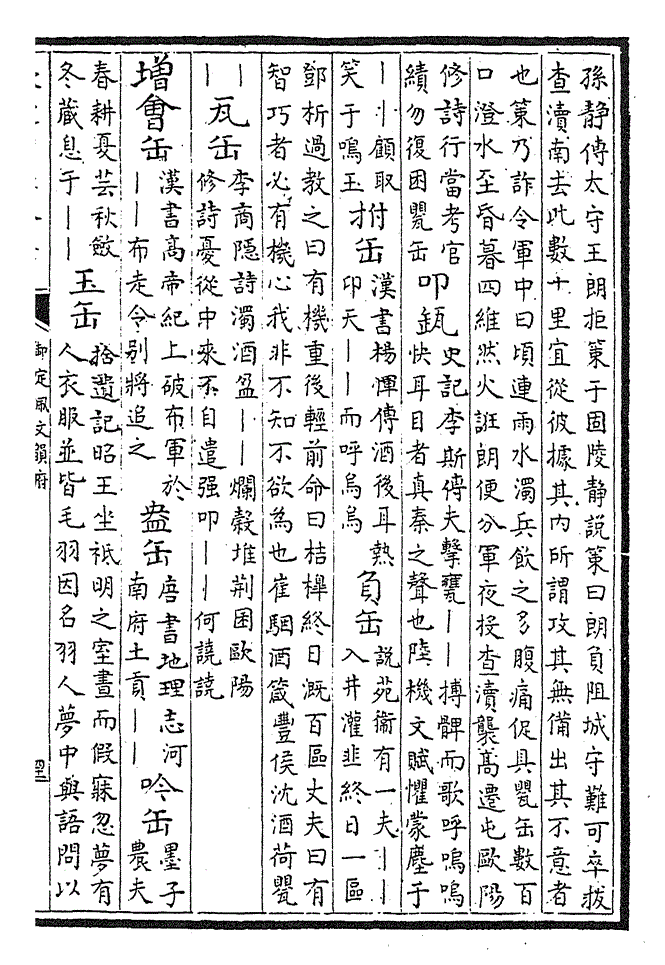 孫静傳太守王朗拒策于固陵静說策曰朗負阻城守難可卒拔
查瀆南去此數十里宜從彼據其内所謂攻其無備出其不意者
也策乃詐令軍中曰頃連雨水濁兵飲之多腹痛促具甖缶數百
口澄水至昏暮四維然火誑朗便分軍夜投查瀆襲高遷屯歐陽
修詩行當考官
績勿復困甖缶
叩缻
史記李斯傳夫擊甕——搏髀而歌呼嗚嗚
快耳目者真秦之聲也陸機文賦懼蒙塵于
——顧取
笑于鳴玉
拊缶
漢書楊惲傳酒後耳熱
卬天——而呼烏烏
負缶
說苑衞有一夫——
入井灌韭終日一區
鄧析過教之曰有機重後輕前命曰桔橰終日溉百區丈夫曰有
智巧者必有機心我非不知不欲為也崔駰酒箴豐侯沈酒荷甖
——
瓦缶
李商隱詩濁酒盈——爛穀堆荆囷歐陽
修詩憂從中來不自遣强叩——何譊譊
增會缶
漢書高帝紀上破布軍於
——布走令别將追之
盎缶
唐書地理志河
南府土貢——
吟缶
墨子
農夫
春耕夏芸秋斂
冬藏息于——
玉缶
拾遺記昭王坐祇明之室晝而假寐忽夢有
人衣服並皆毛羽因名羽人夢中與語問以
御定佩文韻府